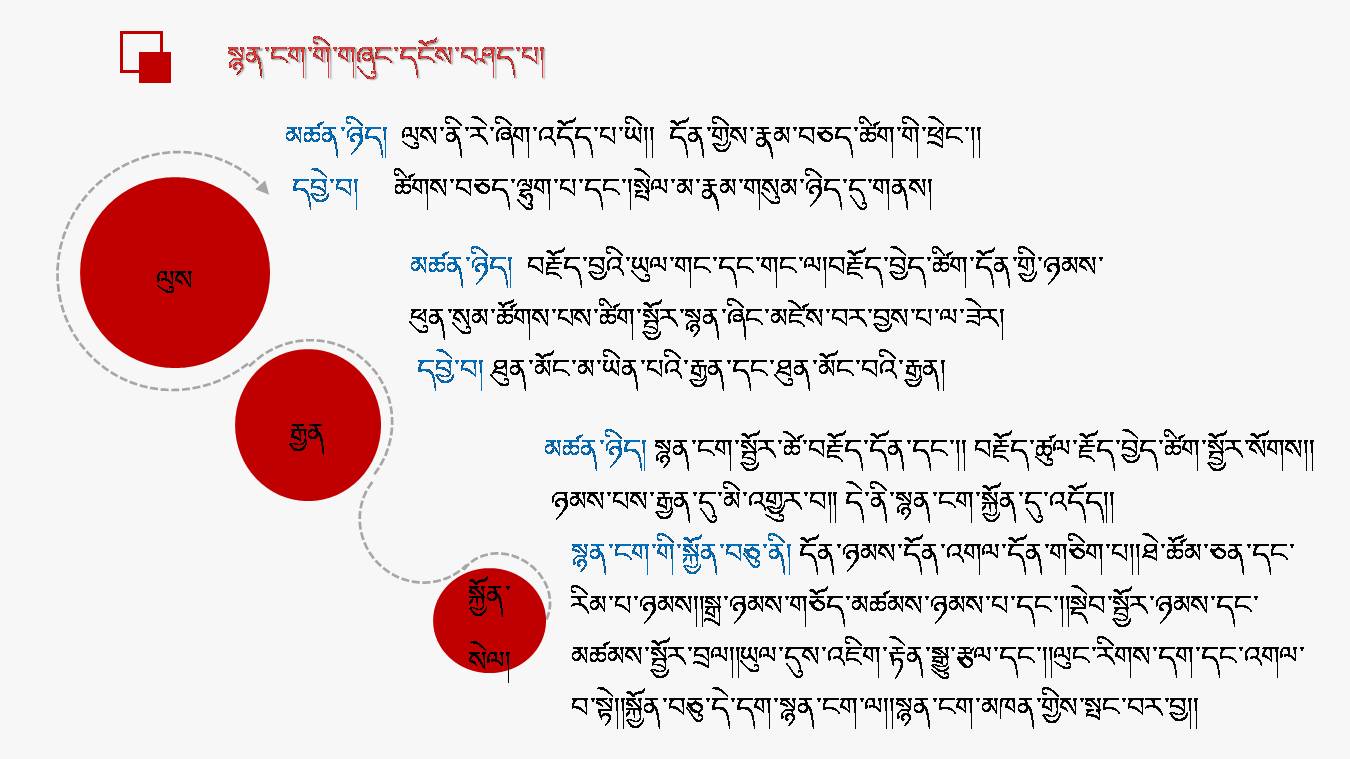 སྙན་ངག་གི་གཞུང་དངོས་བཤད་པ།
མཚན་ཉིད། ལུས་ནི་རེ་ཞིག་འདོད་པ་ཡི།། དོན་གྱིས་རྣམ་བཅད་ཚིག་གི་ཕྲེང་།།
དབྱེ་བ། ཚིགས་བཅད་ལྷུག་པ་དང་།སྤེལ་མ་རྣམ་གསུམ་ཉིད་དུ་གནས།
ལུས
མཚན་ཉིད། བརྗོད་བྱའི་ཡུལ་གང་དང་གང་ལ།བརྗོད་བྱེད་ཚིག་དོན་གྱི་ཉམས་
ཕུན་སུམ་ཚོགས་པས་ཚིག་སྦྱོར་སྙན་ཞིང་མཛེས་བར་བྱས་པ་ལ་ཟེར།
དབྱེ་བ། ཐུན་མོང་མ་ཡིན་པའི་རྒྱན་དང་ཐུན་མོང་བའི་རྒྱན།
རྒྱན
མཚན་ཉིད། སྙན་ངག་སྦྱོར་ཚེ་བརྗོད་དོན་དང་།། བརྗོད་ཚུལ་རྗོད་བྱེད་ཚིག་སྦྱོར་སོགས།།
ཉམས་པས་རྒྱན་དུ་མི་འགྱུར་བ།། དེ་ནི་སྙན་ངག་སྐྱོན་དུ་འདོད།།
སྙན་ངག་གི་སྐྱོན་བཅུ་ནི། དོན་ཉམས་དོན་འགལ་དོན་གཅིག་པ།།ཐེ་ཚོམ་ཅན་དང་
རིམ་པ་ཉམས།།སྒྲ་ཉམས་གཅོད་མཚམས་ཉམས་པ་དང་།།སྡེབ་སྦྱོར་ཉམས་དང་
མཚམས་སྦྱོར་བྲལ།།ཡུལ་དུས་འཇིག་རྟེན་སྒྱུ་རྩལ་དང་།།ལུང་རིགས་དག་དང་འགལ་
བ་སྟེ།།སྐྱོན་བཅུ་དེ་དག་སྙན་ངག་ལ།།སྙན་ངག་མཁན་གྱིས་སྤང་བར་བྱ།།
སྐྱོན་
སེལ།